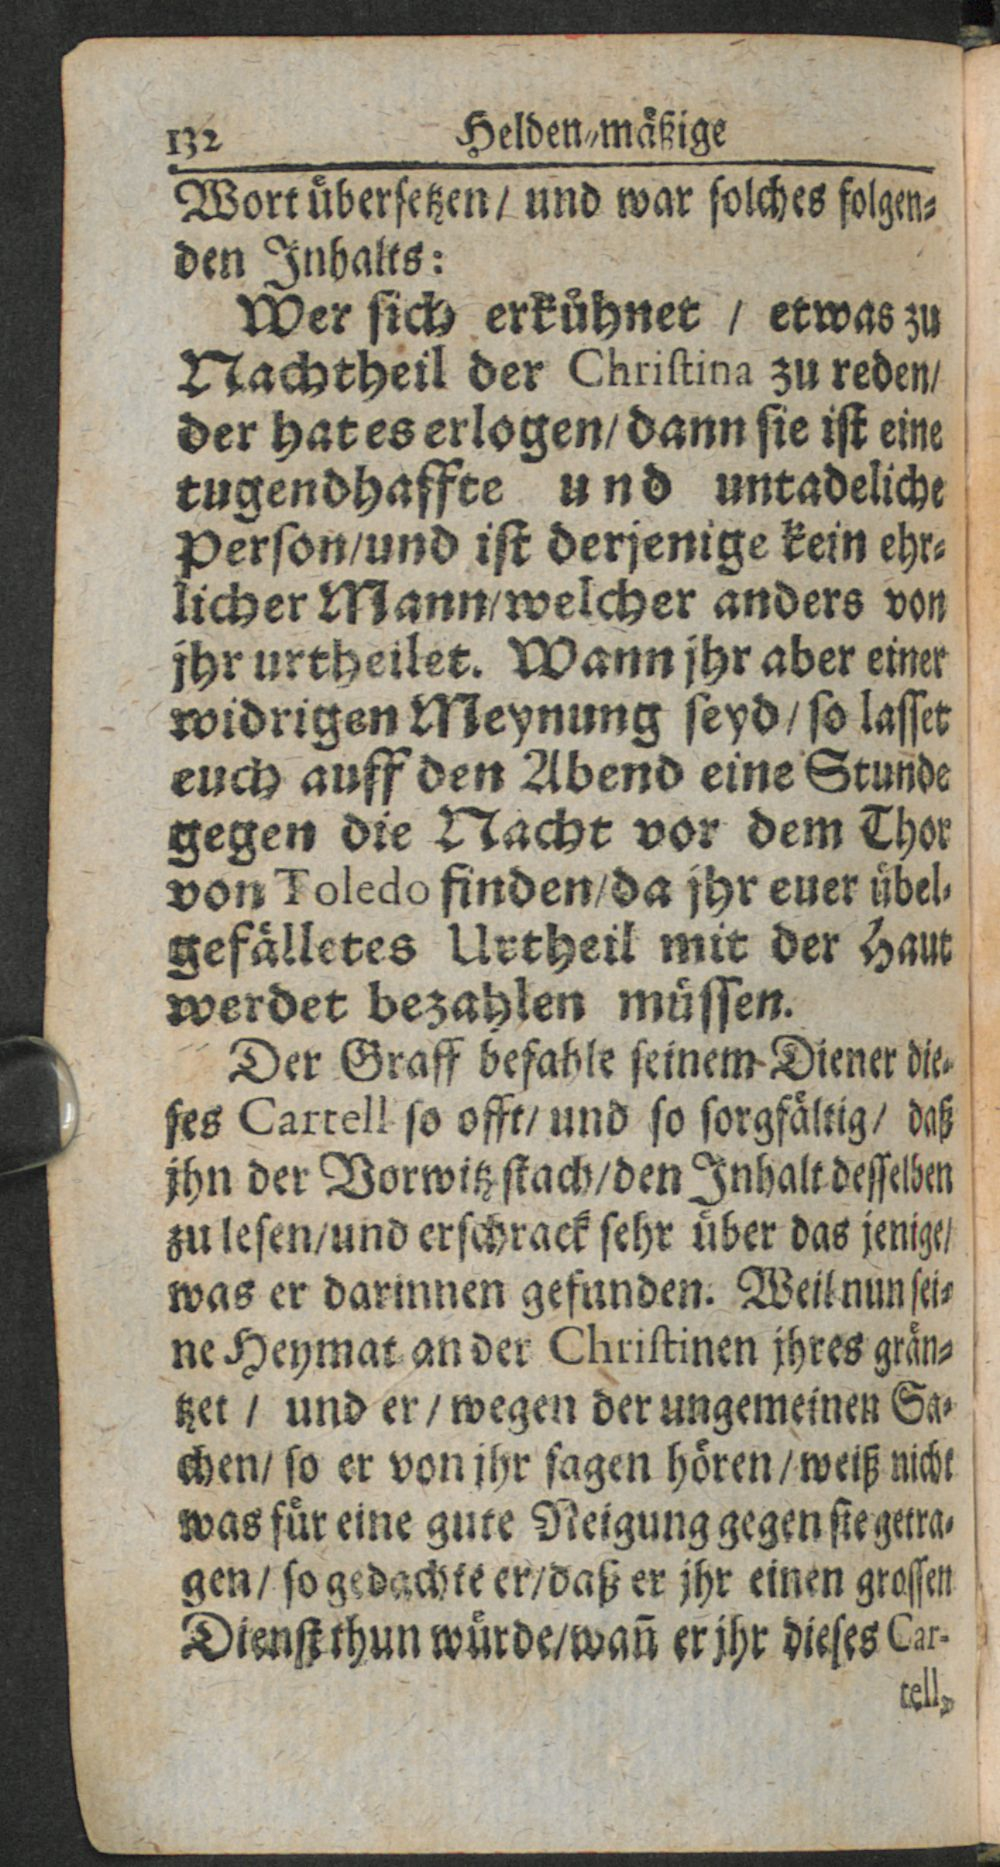 132 Helden-mäßige
Wort übersetzen / und war solches folgen-
den Inhalts:
Wer sich erkühnet / etwas zu
Nachtheil der Christina zu reden /
der hat es erlogen / dann sie ist eine
tugendhaffte und untadeliche
Person / und ist derjenige kein ehr-
licher Mann / welcher anders von
jhr urtheilet. Wann jhr aber einer
widrigen Meynung seyd / so lasset
euch auff den Abend eine Stunde
gegen die Nacht vor dem Thor
von Toledo finden / da jhr euer übel-
gefälletes Urtheil mit der Haut
werdet bezahlen müssen.
Der Graff befahle seinem Diener die-
ses Cartell so offt / und so sorgfältig / daß
jhn der Vorwitz stach / den Inhalt desselben
zu lesen / und erschrack sehr über das jenige /
was er darinnen gefunden. Weil nun sei-
ne Heymat an der Christinen jhres grän-
tzet / und er / wegen der ungemeinen Sa-
chen / so er von jhr sagen hören / weiß nicht
was für eine gute Neigung gegen sie getra-
gen / so gedachte er / daß er jhr einen grossen
Dienst thun würde / wañ er jhr dieses Car-
tell,